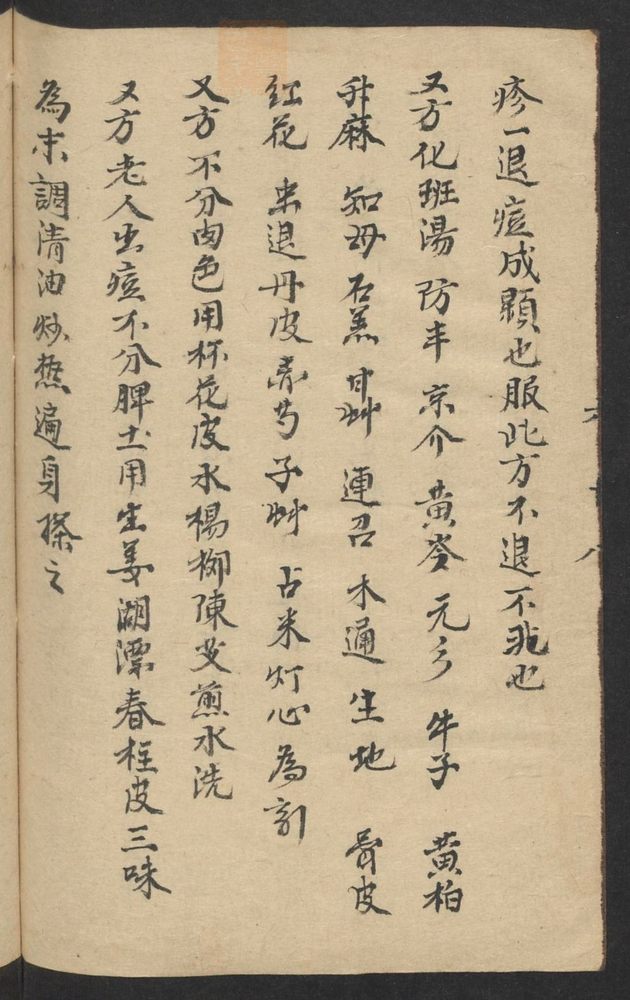 疹一退痘成顆也服此方不退不兆也
又方化班湯 防丰 京介 黄芩 元彡 牛子 黄柏
升麻 知母 石羔 甘艸 連召 木通 生地 骨皮
红花 虫退 丹皮 赤芍 子艸 占米 灯心為引
又方不分肉色用杯花皮水楊柳陳艾煎水洗
又方老人出痘不分脾土用生姜湖漂春柱皮三味
為末調清油炒热遍身搽之